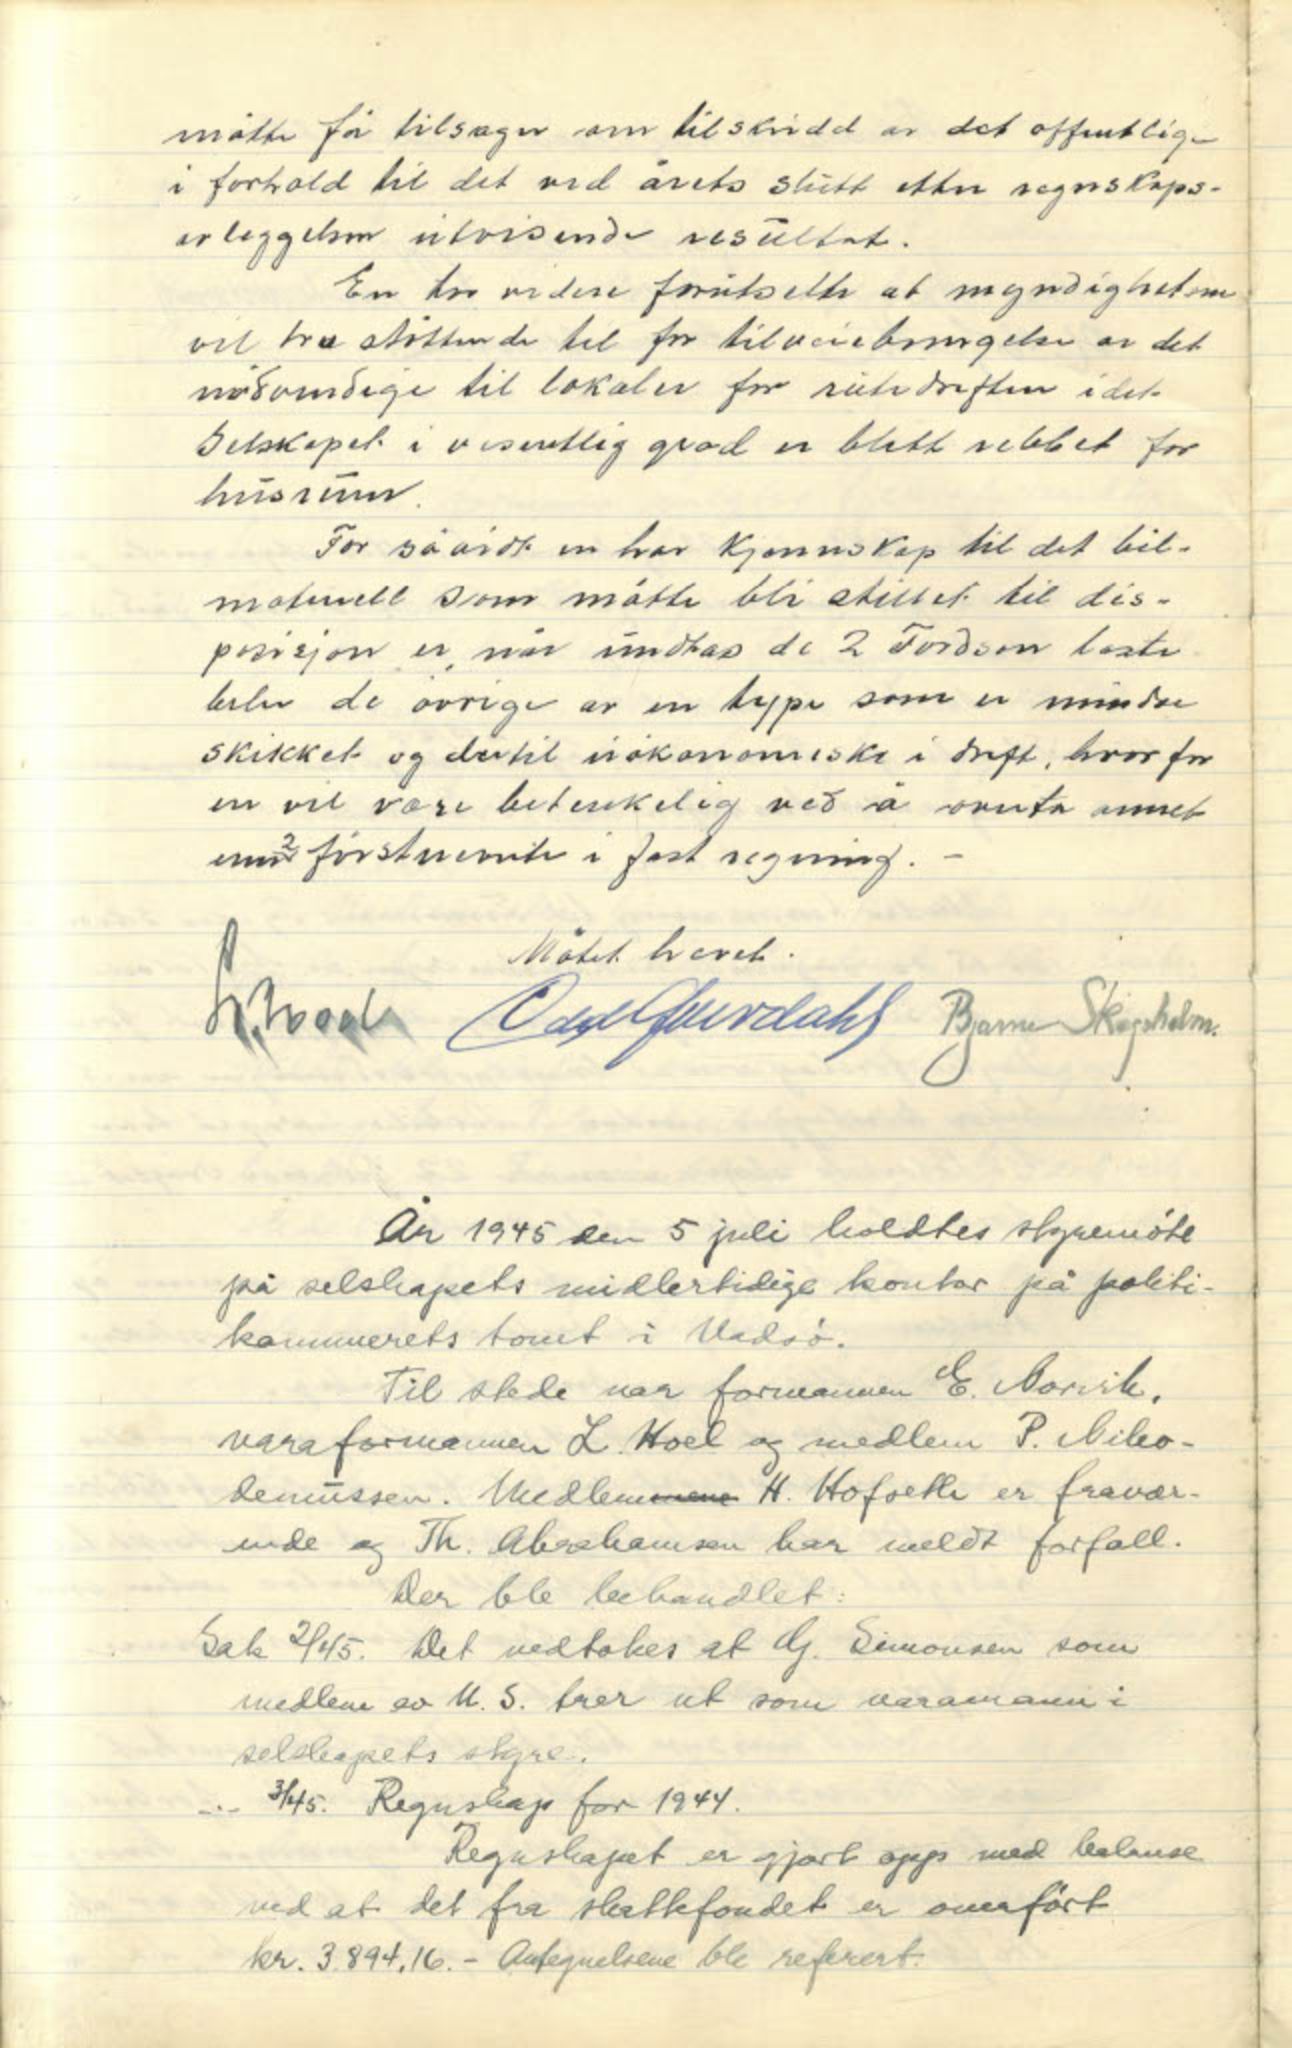 måtte få tilsagn om tilskudd av det offentlige
i forhold til det ved årets slutt etter regnskaps-
avleggelsen utvisende resultat.
En tør videre forutsette at myndighetene
vil tre støttende til for tilveiebringelse av det
nødvendige til lokaler for rutedriften idet
Selskapet i vesentlig grad er blitt ribbet for
husrum.
For såvidt en har kjennskap til det bil-
materiell som måtte bli stillet til dis-
posisjon er, når undtas de 2 Fordson laste
biler de øvrige av en type som er mindre
skikket og dertil uøkonomiske i drift, hvorfor
en vil være betenkelig ved å overta annet
enn 2 førstnevnte i fast regning. -
Møtet hevet.
Bjarne Skogsholm.
År 1945 den 5 juli holdtes styremöte
på selskapets midlertidige kontor på politi-
kammerets tomt i Vadsö.
Til stede var formannen E. Norvik,
varaformannen L. Hoel og medlem P. Niko-
demussen. Medlemmene H. Hofseth er fravær-
ende og Th. Abrahamsen har meldt forfall.
Der ble behandlet:
Sak 2/45. Det vedtokes at Hj. Simonsen som
medlem av N. S. trer ut som varamann i
selskapets styre.
-"- 3/45. Regnskap for 1944.
Regnskapet er gjort opp med balanse
ved at det fra skattefondet er overfört
kr. 3.894,16. - Antegnelsene ble referert.